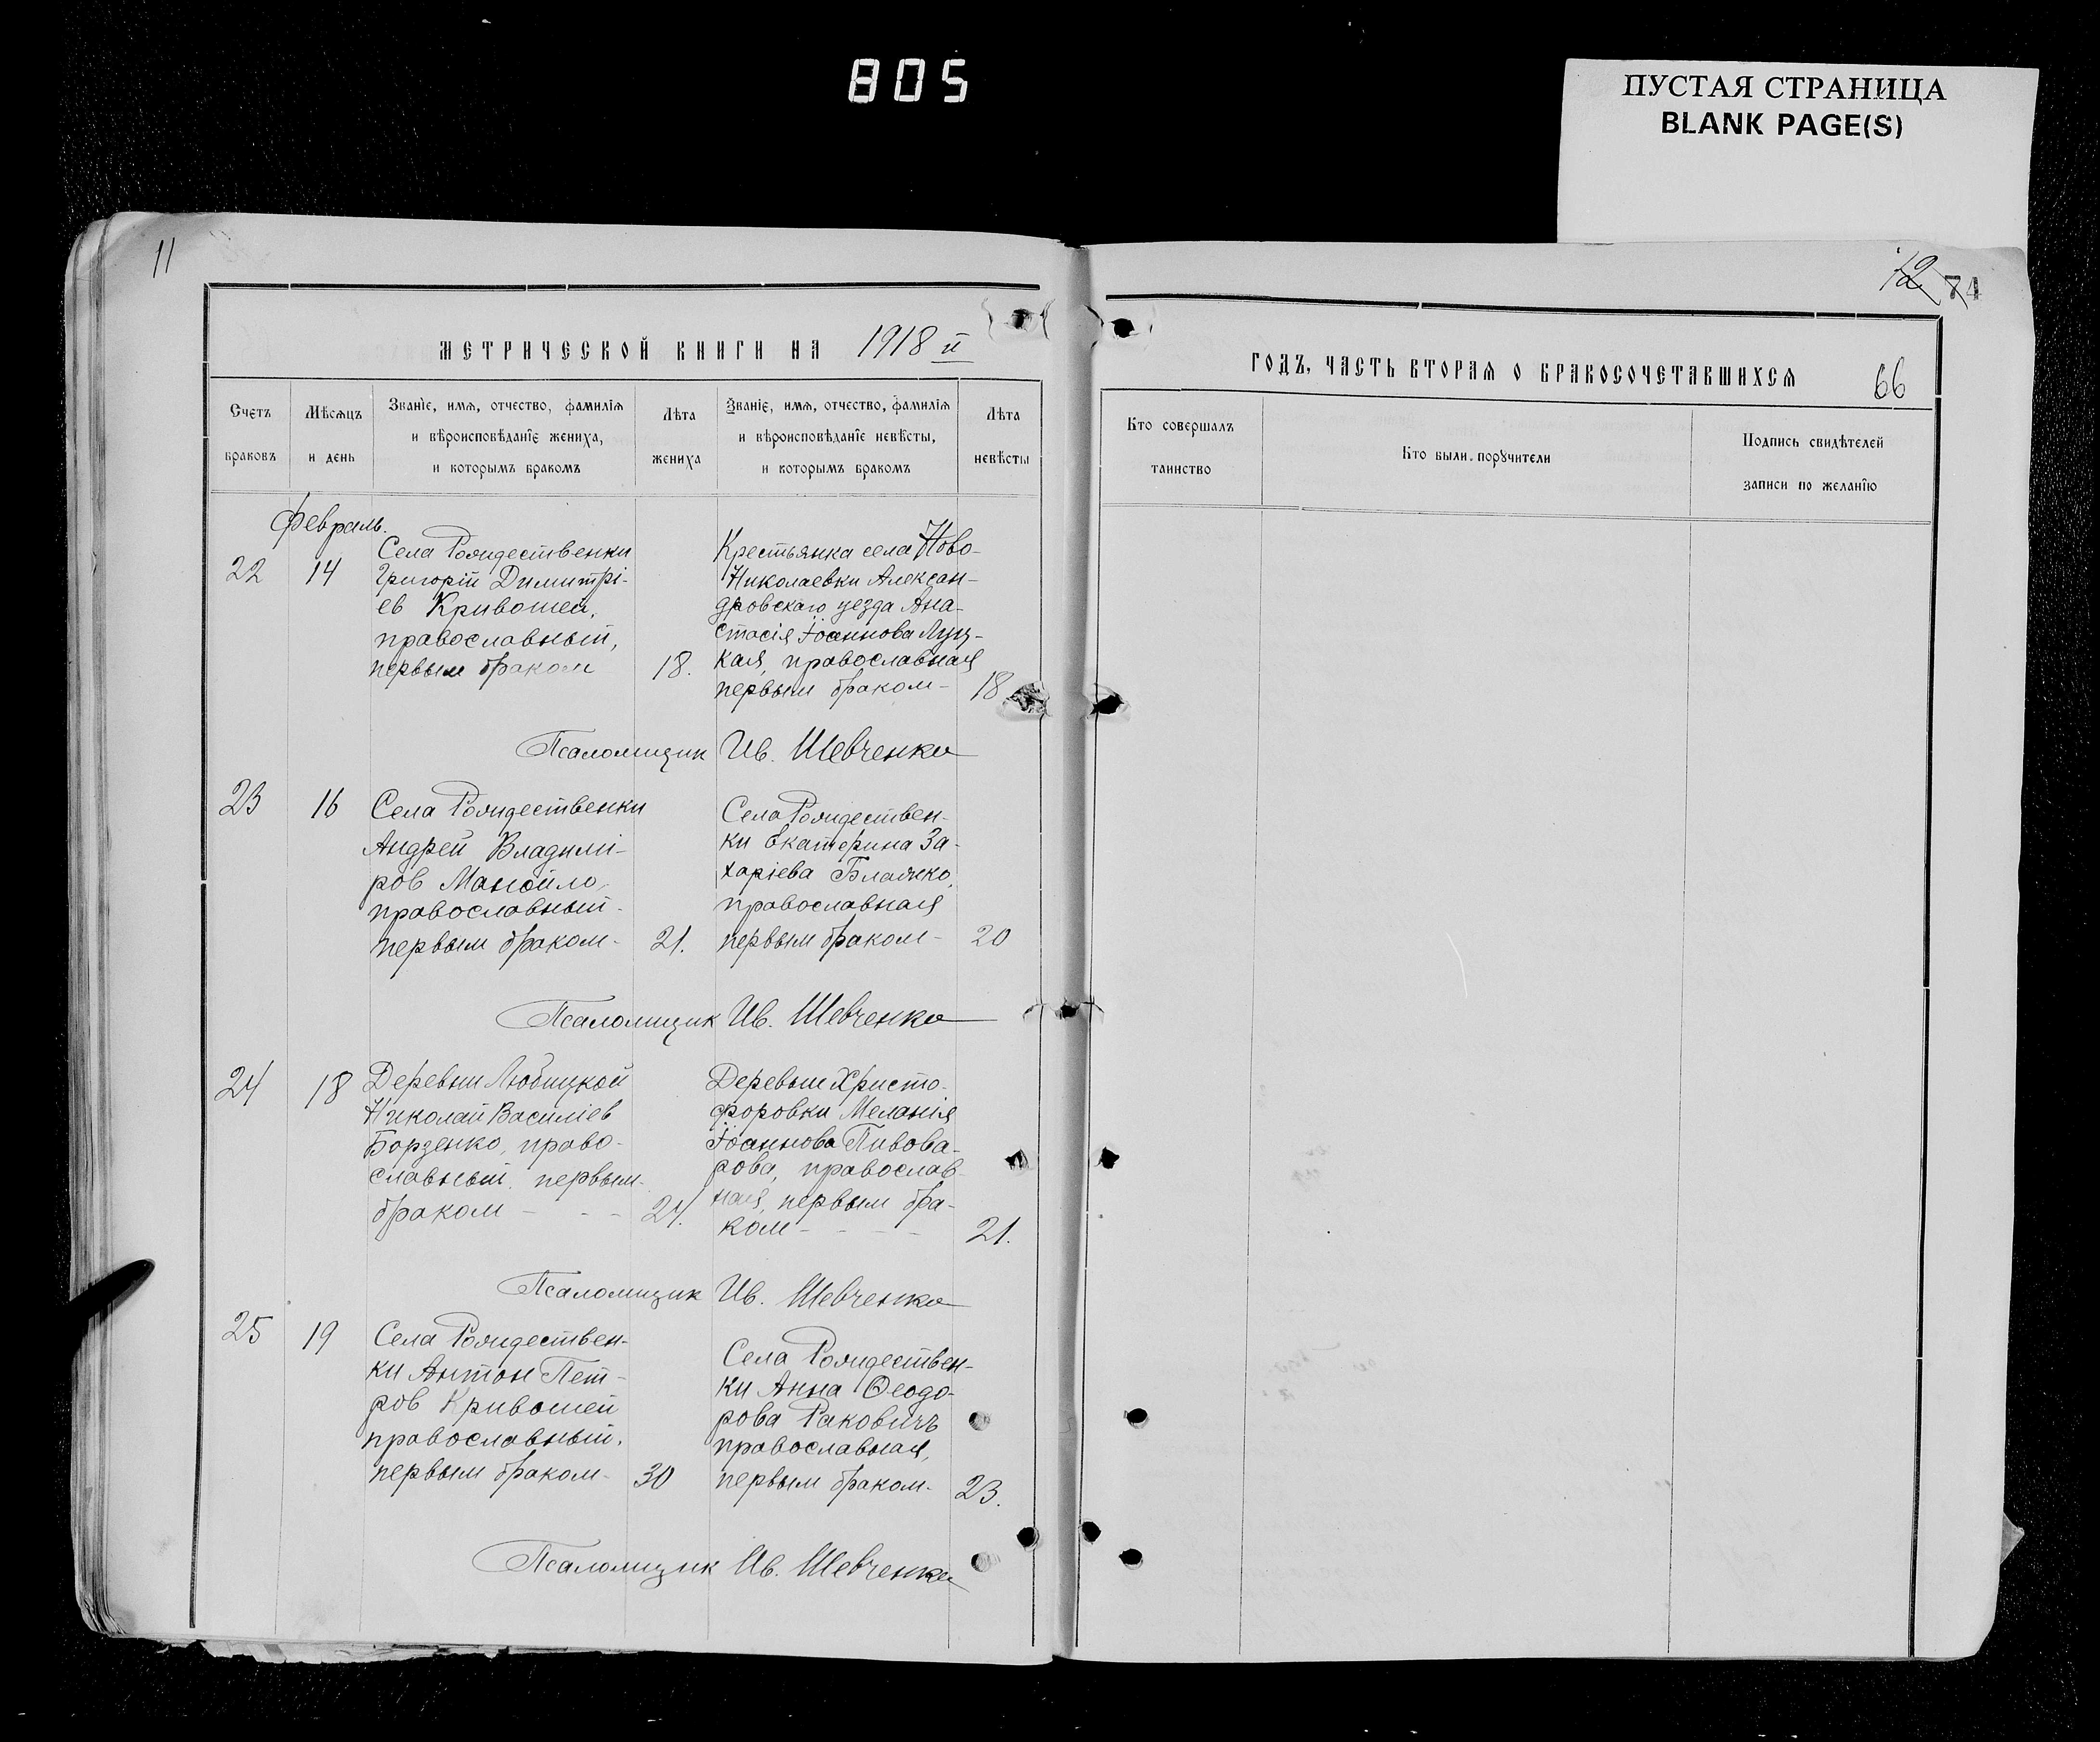 805
ПУСТАЯ СТРАНИЦА
BLANK PAGE(S)
11
12 74
МЕТРИЧЕСКОЙ КНИГИ НА 1918 й
Счетъ браковъ
Мѣсяцъ и день
Званіе, имя, отчество, фамилія
и вѣроисповѣданіе жениха,
и которымъ бракомъ
Лѣта жениха
Званіе, имя, отчество, фамилія
и вѣроисповѣданіе невѣсты,
и которымъ бракомъ
Лѣта невѣсты
Февраль.
22
14
Села Рождественки
Григорій Димитрі-
ев Кривошей,
православный,
первым браком
18.
Крестьянка села Ново-
Николаевки Алексан-
дровскаго уезда Ана-
стасія Іоаннова Луц-
кая, православная
первым браком-
18
Псаломщик Ив. Шевченко
23
16
Села Рождественки
Андрей Владимі-
ров Манойло,
православный-
первым браком-
21.
Села Рождествен-
ки Екатерина За-
харіева Бламжко,
православная
первым браком-
20
Псаломщик Ив. Шевченко
24
18
Деревни Любицкой
Николай Василіев
Борзенко, право-
славный, первым
браком - - -
24.
Деревни Христо-
форовки Меланія
Іоаннова Пивова-
рова, православ-
ная, первым бра-
ком - - - -
21.
Псаломщик Ив. Шевченко
25
19
Села Рождествен-
ки Антон Пет-
ров Кривошей
православный,
первым браком-
30
Села Рождествен-
ки Анна Ѳеодо-
рова Раковичъ
православная,
первым браком-
23.
Псаломщик Ив. Шевченко
ГОДЪ, ЧАСТЬ ВТОРАЯ О БРАКОСОЧЕТАВШИХСЯ
66
Кто совершалъ
таинство
Кто были поручители
Подпись свидѣтелей
записи по желанію